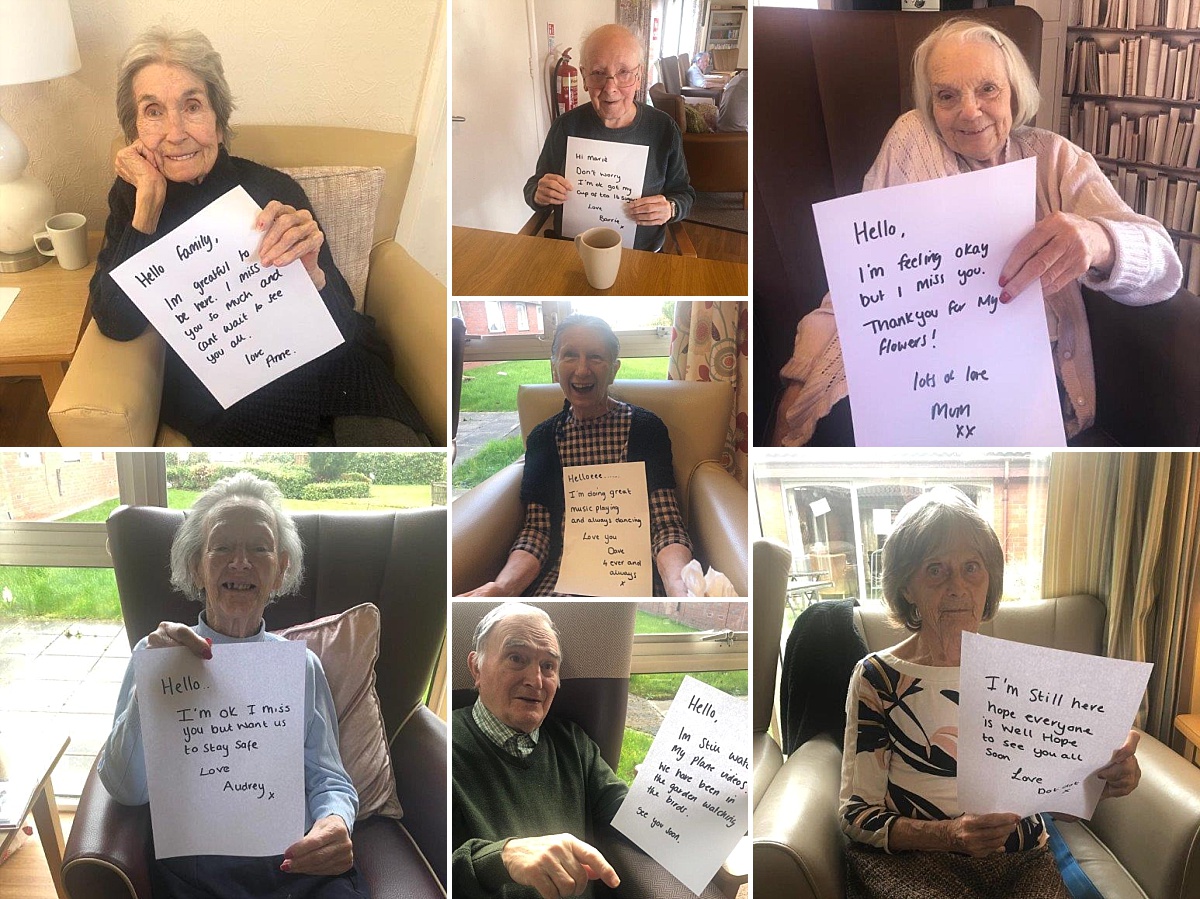 Hello Family,
Im greatful to
be here. I miss
you so much and
cant wait to see
you all.
love
Anne.
Hi Marie
Don't worry
I'm ok got my
cup of tea
Love
Barrie
x
Hello,
I'm feeling okay
but I miss you.
Thankyou for My
flowers!
lots of love
Mum
xx
Helloeee......
I'm doing great
music playing
and always dancing
Love you
Dave
4 ever and
always
x
Hello..
I'm ok I miss
you but want us
to stay safe
Love
Audrey x
Hello,
Im still
My plane videos
We have been in
the garden watching
the birds.
See you soon.
I'm Still here
hope everyone
is Well Hope
to see you all
Soon
Love
Dot
x